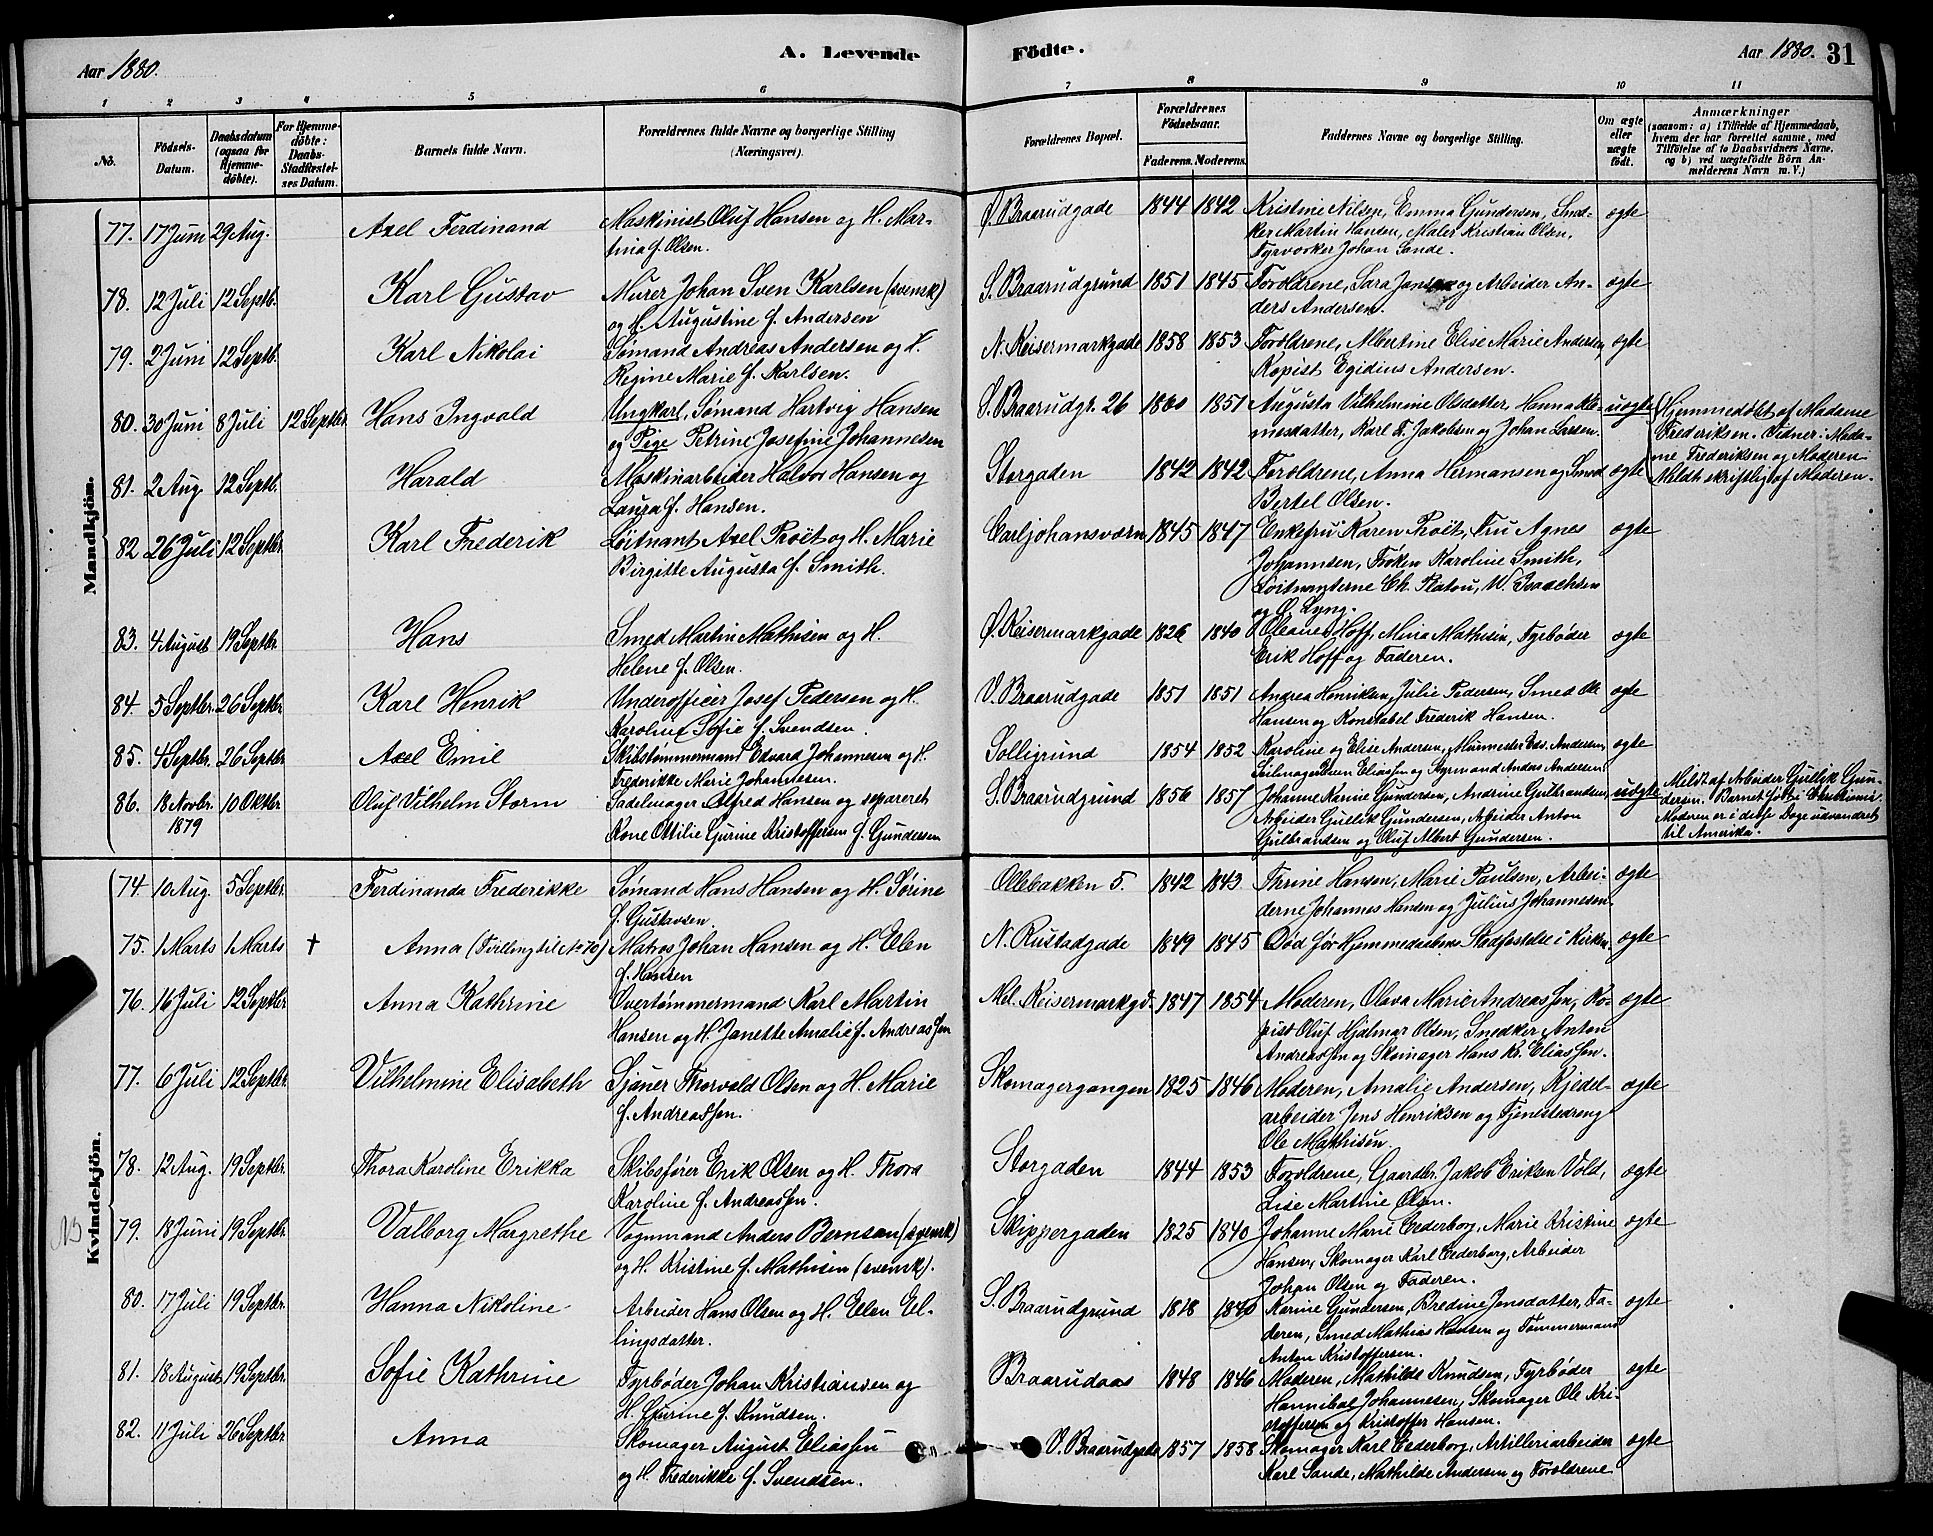 Aar 1880.
A. Levende
Födte.
Aar 1880.
31
1 2 3 4 5 6 7 8 9 10 11
No.
Födsels-Datum.
Daabsdatum (ogsaa for Hjemme-döbte).
For Hjemme-döbte: Daabs-Stadfæstel-ses Datum.
Barnets fulde Navn.
Forældrenes fulde Navne og borgerlige Stilling (Næringsvei).
Forældrenes Bopæl.
Forældrenes Födselsaar.
Faderens. Moderens.
Faddernes Navne og borgerlige Stilling.
Om ægte eller uægte födt.
Anmærkninger
(saasom: a) i Tilfælde af Hjemmedaab,
hvem der har forrettet samme, med
Tilföielse af to Daabsvidners Navne,
og b) ved uægtefödte Börn An-
melderens Navn m. V.)
Mandkjön.
77. 17 Juni 29 Aug. Axel Ferdinand Maskinist Oluf Hansen og H. Mar- Ø. Braarudgade 1844 1842 Kristine Nilsen, Emma Gundersen, Sned- ægte
tina f. Olsen. ker Martin Hansen, Maler Kristian Olsen,
Fyrvorker Johan Sande.
78. 12 Juli 12 Septb. Karl Gustav Murer Johan Sven Karlsen (svensk) S. Braarudgrund 1851 1845 Forældrene, Sara Jansen og Arbeider An- ægte
og H. Augustine f. Andersen ders Andersen.
79. 2 Juni 12 Septb. Karl Nikolai Sømand Andreas Andersen og H. N. Keisermarkgade 1858 1853 Forældrene, Albertine Elise Marie Andersen, ægte
Regine Marie f. Karlsen. Kopist Egidius Andersen.
80. 30 Juni 8 Juli 12 Septbr. Hans Ingvald Ungkarl, Sømand Hartvig Hansen S. Braarudgr. 26 1860 1851 Augusta Vilhelmine Olsdatter, Hanna Kle- uægte Hjemmedøbt af Madame
og Pige Petrine Josefine Johannesen mesdatter, Karl F. Jakobsen og Johan Larsen. Frederiksen. Vidner: Mada-
81. 2 Aug. 12 Septb. Harald Maskinarbeider Halvor Hansen og Storgaden 1842 1842 Forældrene, Anna Hermansen og Smed ægte me Frederiksen og Moderen
Laura f. Hansen. Bertel Olsen. Meldt skriftlig af Moderen.
82 26 Juli 12 Septbr. Karl Frederik Løitnant Axel Proët og H. Marie Carljohansværn 1845 1847 Enkefru Karen Proët, Fru Agnes ægte
Birgitte Augusta f. Smith. Johannsen, Frøken Karoline Smith,
Løitnanterne Ch. Platou, W. Isaachsen
og O. Lyng.
83. 4 August 19 Septbr. Hans Smed Martin Mathisen og H. Ø. Keisermarkgade 1826 1840 Oleane Hoff, Mina Mathisen, Fyrbøder ægte
Helene f. Olsen. Erik Hoff og Faderen.
84. 5 Septbr. 26 Septbr Karl Henrik Underofficer Josef Pedersen og H. V. Braarudgade 1851 1851 Andrea Henriksen, Julie Pedersen, Smed Ole ægte
Karoline Sofie f. Svendsen. Hansen og Konstabel Frederik Hansen.
85. 4 Septbr. 26 Septbr Axel Emil Skibstømmermand Edvard Johannesen og H. Solligrund 1854 1852 Karoline og Elise Andersen, Murmester Eds. Andersen, ægte
Frederikke Marie Johannesen. Seilmager Eliassen og Styrmand Andas Andersen.
86. 18 Novbr. 10 Oktbr. Oluf Vilhelm Storm Sadelmager Alfred Hansen og separeret S. Braarudgrund 1856 1857 Johanne Karine Gundersen, Andrine Gulbrandsen, uægte Meldt af Arbeider Gullik Gun-
1879 Kone Ottilie Gurine Kristoffersen f. Gundersen Arbeider Gullik Gundersen, Arbeider Anton dersen. Barnet født i Christiania.
Gulbrandsen og Oluf Albert Gundersen. Moderen er i disse Dage udvandret
til Amerika.
Kvindekjön.
74 10 Aug. 5 Septbr. Ferdinanda Frederikke Sømand Hans Hansen og H. Sørine Ollebakken 5. 1842 1843 Thrine Hansen, Marie Paulsen, Arbei- ægte
f. Gustavsen. derne Johannes Hansen og Julius Johannesen.
75. 1 Marts 1 Marts † Anna (Tvilling til No 70) Matros Johan Hansen og H. Elen N. Rustadgade 1849 1845 Død før Hjemmedaabens Stadfæstelse i Kirken. ægte
f. Hansen
76. 16 Juli 12 Septbr Anna Kathrine Overtømmermand Karl Martin Mel. Keisermarkgd. 1847 1854 Moderen, Olava Marie Andreassen, Ko- ægte
Hansen og H. Janette Amalie f. Andreassen pist Oluf Hjalmar Olsen, Snedker Anton
Andreassen og Skomager Hans Kr. Eliassen.
77. 6 Juli 12 Septbr. Vilhelmine Elisabeth Sjauer Thorvald Olsen og H. Marie Skomagergangen 1825 1846 Moderen, Amalie Andersen, Kjedel- ægte
f. Andreassen. arbeider Jens Henriksen og Tjenestedreng
Ole Mathisen.
78. 12 Aug. 19 Septbr. Thora Karoline Erikka Skibsfører Erik Olsen og H. Thora Storgaden 1844 1853 Forældrene, Gaardbr. Jakob Eriksen Vold, ægte
Karoline f. Andreassen. Lise Martine Olsen.
79. 18 Juni 19 Septbr. Valborg Margrethe Vognmand Anders Bernson (svensk) Skippergaden 1825 1840 Johanne Marie Cederborg, Marie Kristine ægte
og H. Kristine f. Mathisen (svensk). Hansen, Skomager Karl Cederborg, Arbeider
Johan Olsen og Faderen.
80. 17 Juli 19 Septbr. Hanna Nikoline Arbeider Hans Olsen og H. Elen El- S. Braarudgrund 1818 1840 Karine Gundersen, Bredine Jonsdatter, Fa- ægte
lingsdatter. deren, Smed Mathias Hansen og Tømmermand
Anton Kristoffersen.
81. 18 August 19 Septbr. Sofie Kathrine Fyrbøder Johan Kristiansen og Braarudaas 1848 1846 Moderen, Mathilde Knudsen, Fyrbøder ægte
H. Gurine f. Knudsen. Hannibal Johannesen, Skomager Ole Kri-
stoffersen og Kristoffer Hansen.
82. 11 Juli 26 Septbr Anna Skomager August Eliassen V. Braarudgade 1857 1858 Skomager Karl Cederborg, Artilleriarbeider ægte
og H. Frederikke f. Svendsen. Karl Sande, Mathilde Andersen og Forældrene